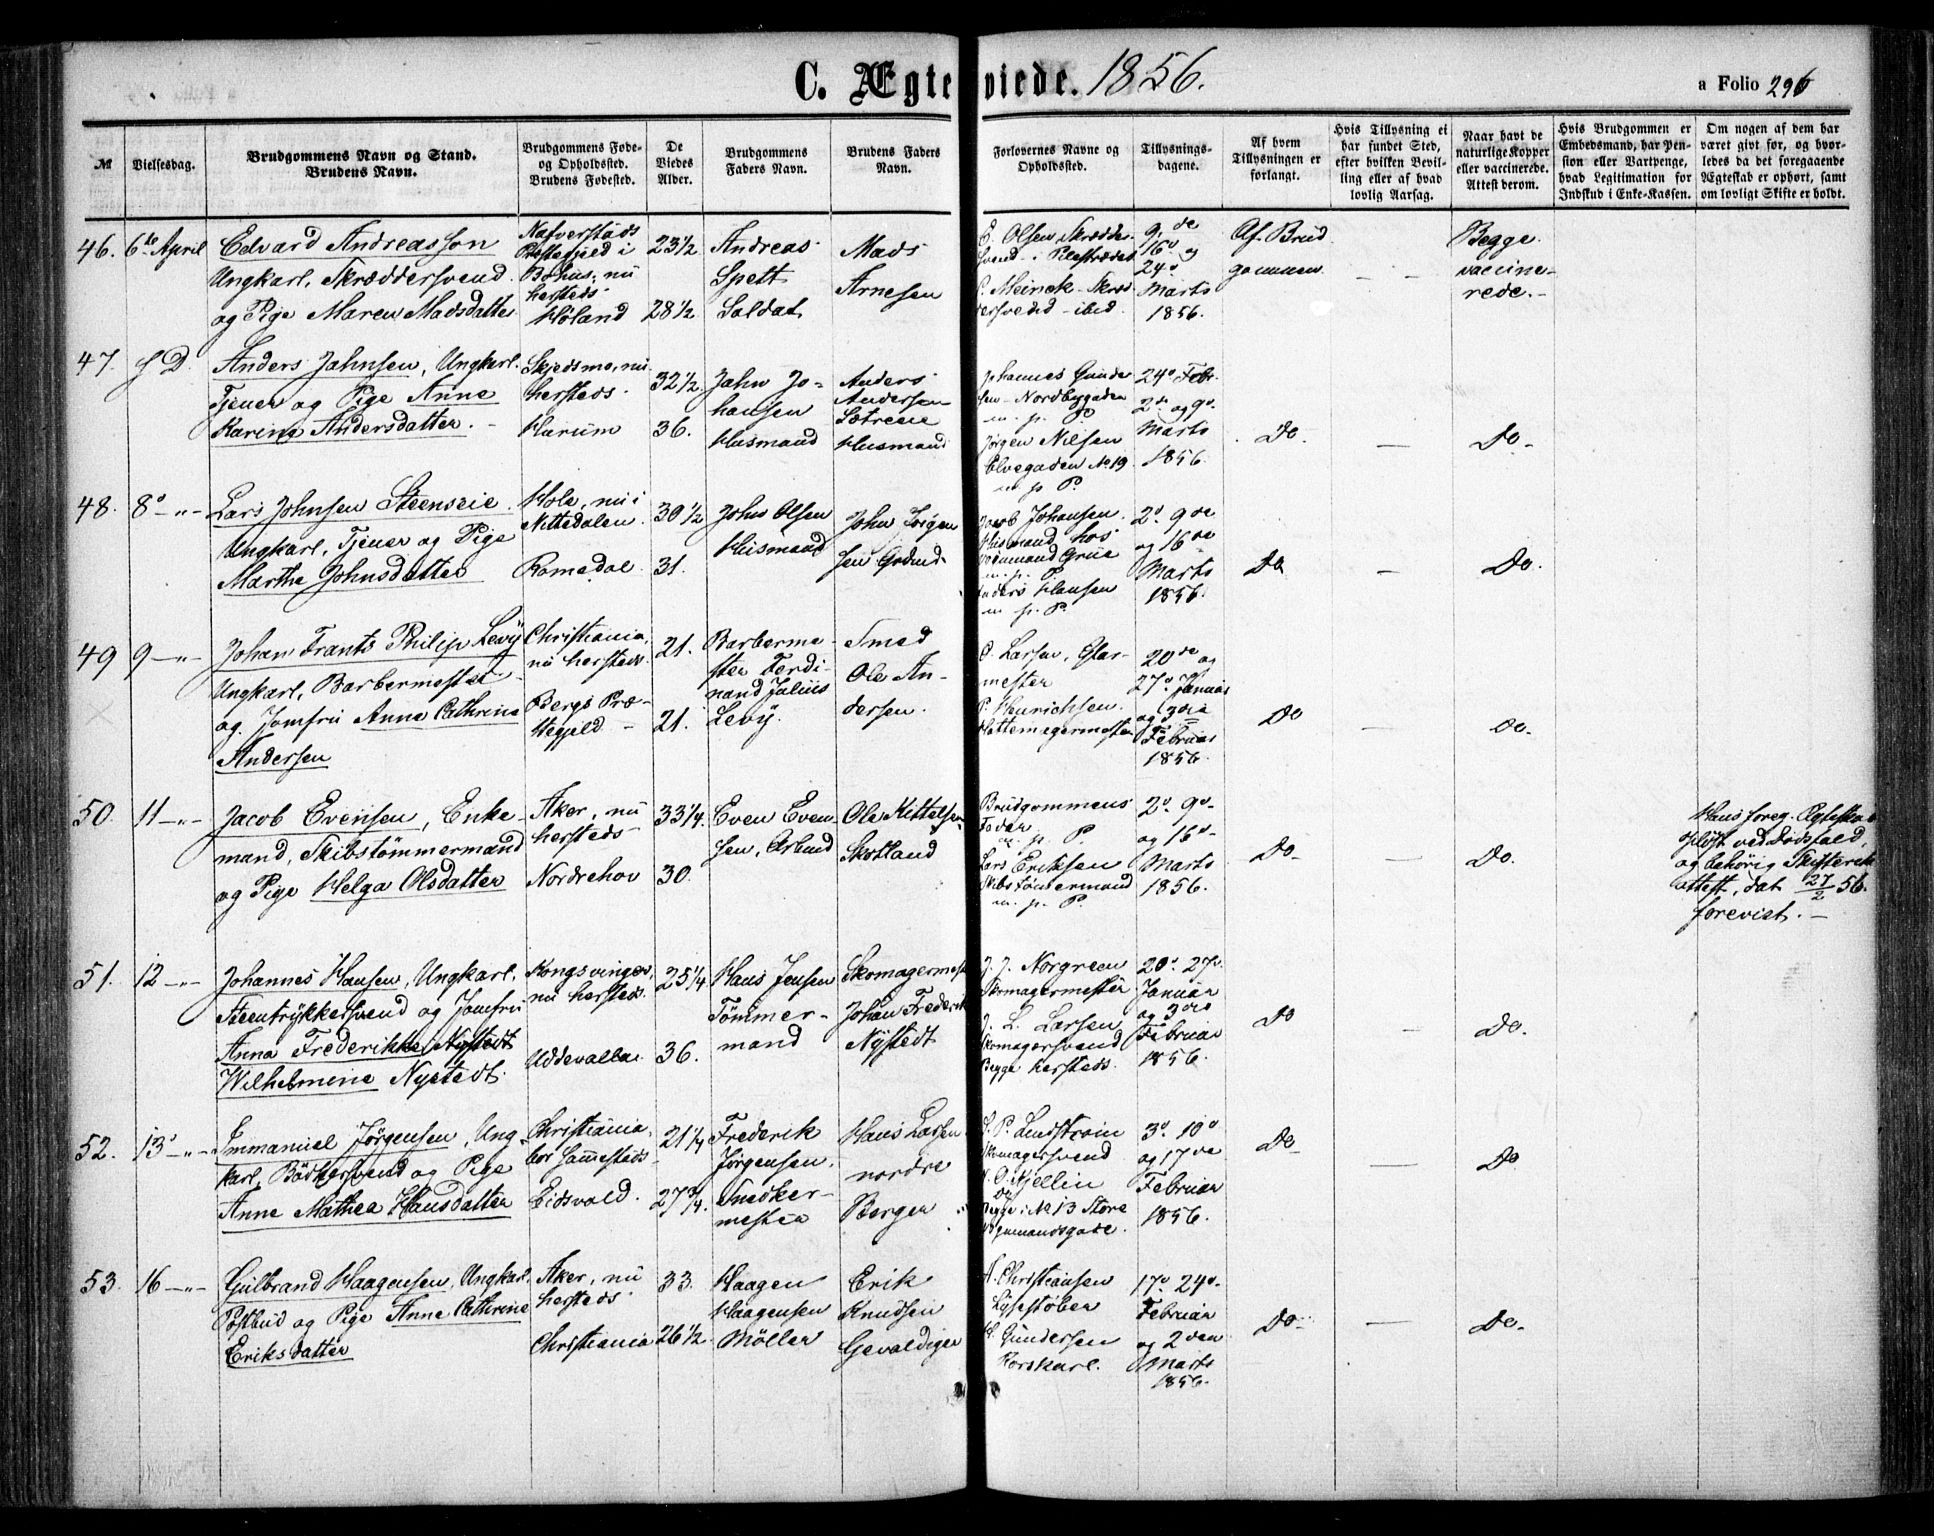 C. Ægteviede. 1856.
a Folio 296
№
Vielsesdag.
Brudgommens Navn og Stand.
Brudens Navn.
Brudgommens Føde-
og Opholdssted.
Brudens Fødested.
De
Viedes
Alder.
Brudgommens
Faders Navn.
Brudens Faders
Navn.
Forlovernes Navne og
Opholdssted.
Tillysnings-
dagene.
Af hvem
Tillysningen er
forlangt.
Hvis Tillysning ei
har fundet Sted,
efter hvilken Bevil-
ling eller af hvad
lovlig Aarsag.
Naar havt de
naturlige Kopper
eller vaccinerede.
Attest derom.
Hvis Brudgommen er
Embedsmand, har Pen-
sion eller Vartpenge,
hvad Legitimation for
Indskud i Enke-Kassen.
Om nogen af dem har
været givt før, og hvor-
ledes da det foregaaende
Ægteskab er ophørt, samt
om lovligt Skifte er holdt.
46.
6te April
Edvard Andreasson
Ungkarl, Skræddersvend
og Pige Maren Madsdatter
Nafverstads
Præstegjeld i
Bohus, nu
hersteds
Høland
23 1/2
28 1/2
Andreas
Spett
Soldat
Mads
Arnesen
E. Olsen Skrædder
svend i Pilestrædet
P. Meinck Skræd
dersvend - ibid.
9. de
16d og
24d
Marts
1856.
Af Brud
gommen
Begge
vaccine-
rede. -
47.
s D.
Anders Jahnsen, Ungkarl.
Tjener og Pige Anne
Karine Andersdatter. -
Skjedsmo, nu
hersteds.
Hurum
32 1/2
36.
Jahn Jo-
hansen
Husmand
Anders
Andersen
Sætreeie
Husmand
Johannes Gunder
sen - Nordbygaden
m. p. P.
Jørgen Nilsen
Elvegaden No 19
m. p. P.
24d Febr.
2de og 9d
Marts
1856.
Do.
Do.
48.
8d -"-
Lars Johnsen Steenseie.
Ungkarl, Tjener og Pige
Marthe Johnsdatter
Hole, nu i
Nittedalen.
Romedal.
30 1/2
31.
John Olsen
Husmand
John Jørgen
sen Grønd
Jacob Johansen
Husmand hos
m. p. P.
Anders Hansen
m. p. P.
2d 9de
og 16de
Marts
1856.
Do
Do.
49
9 -"-
Johan Frants Philip Levÿ
Ungkarl, Barbermester
og Jomfru Anna Cathrina
Andersen
Christiania,
nu hersteds.
Bergs Præ-
stegjeld. -
21.
21.
Barberme-
ster Ferdi-
nand Julius
Levÿ.
Smed
Ole An-
dersen.
C. Larsen, Glar-
mester
P. Henrichsen.
Hattemagermester
20de og
27d Januar
og 3die
Februar
1856.
Do
do.
50.
11 -"-
Jacob Evensen, Enke-
mand, Skibstømmermand
og Pige Helga Olsdatter
Aker, nu
hersteds
Nordrehov
33 1/4.
30.
Even Even-
sen, Arbmd
Ole Kittelsen
Skotland
Brudgommens
Fader
m. p. P.
Lars Eriksen
Skibstømmermand
m. p. P.
2d 9d
og 16d
Marts
1856.
Do
Do.
Hans foreg. Ægteskab
opløst ved Dødsfald,
og behørig Skifterets
attest, dat 27/2 56.
forevist. -
51.
12 -"-
Johannes Hansen, Ungkarl,
Steentrykkersvend og Jomfru
Anna Frederikke Nystedt
Wilhelmine Nystedt.
Kongsvinger,
nu hersteds.
Uddevalla.
25 1/4
36.
Hans Jensen
Tømmer-
mand
Skomagermest
Johan Frederik
Nystedt
J. J. Norgreen
Skomagermester
J. L. Larsen
Skomagersvend
Begge hersteds.
20d 27d
Januar
og 3die
Februar
1856.
Do
Do.
52.
13d -"-
Immanuel Jørgensen, Ung-
karl, Bødkersvend og Pige
Anne Mathea Hansdatter
Christiania,
bor sammesteds
Eidsvold.
21 1/4
27 3/4.
Frederik
Jørgensen,
Snedker-
mester
Hans Larsen
nordre
Berger
L. P. Lundstrøm
Skomagersvend
N. O. Kjellin
do
Begge i No 13 Store
Vognmandsgade.
3d 10d
og 17de
Februar
1856.
Do
Do
53.
16 -"-
Gulbrand Haagensen, Ungkarl,
Postbud og Pige Anne Cathrine
Eriksdatter
Aker, nu
hersteds.
Christiania
33.
26 1/2.
Haagen
Haagensen
Møller
Erik
Knudsen
Gevaldiger
A. Christiansen
Lysestøber
H. Gundersen
Torskarl.
17d 24d
Februar
og 2den
Marts
1856.
Do.
Do.